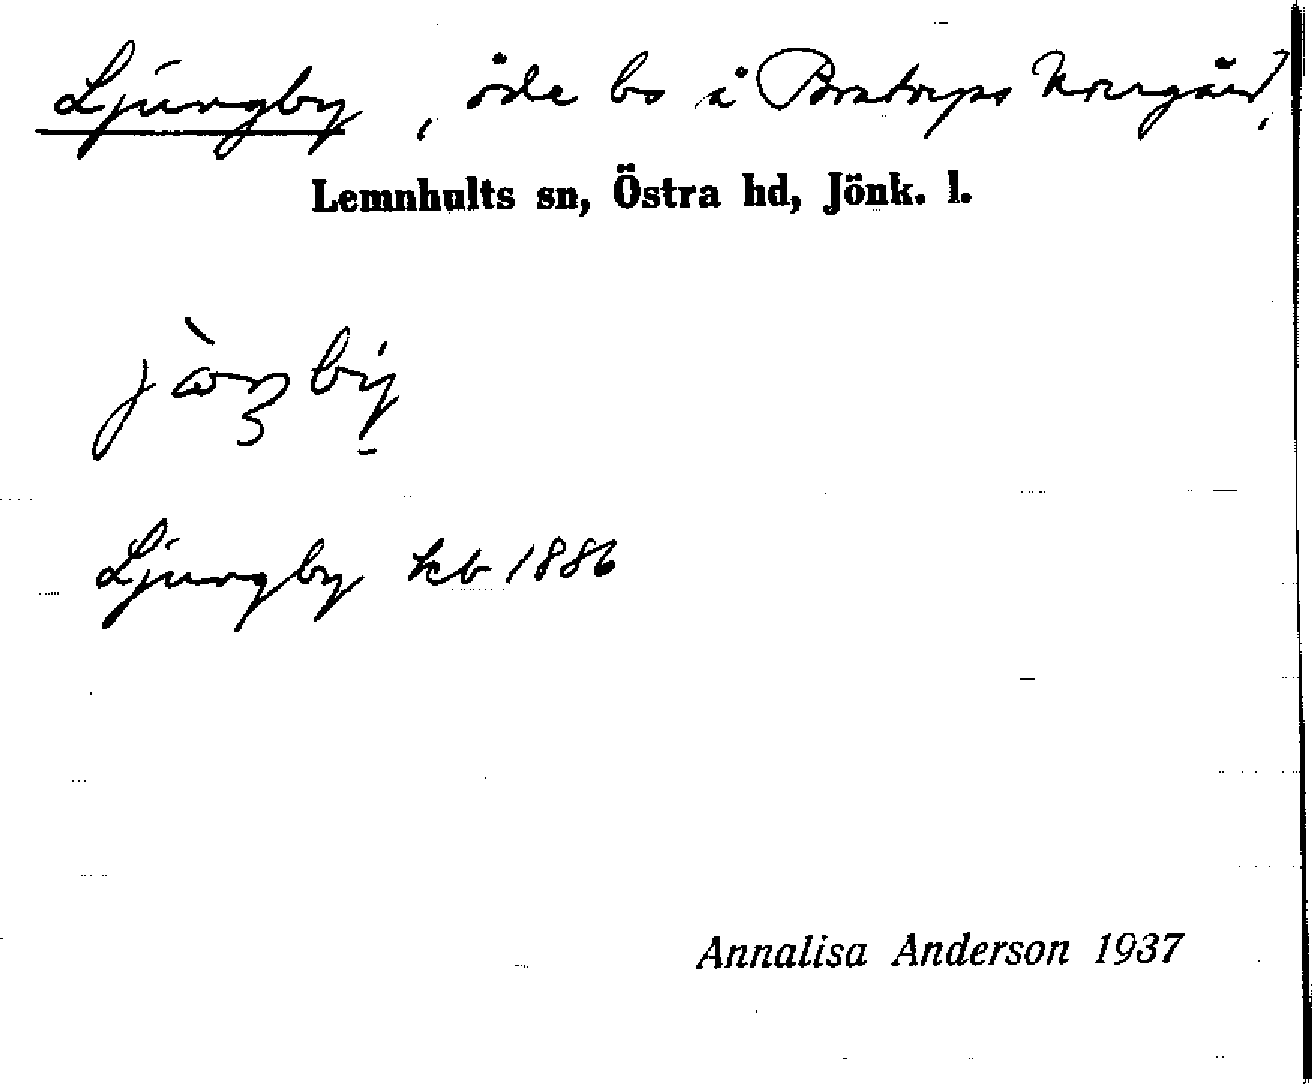 Ljungby, öde bs å Bratorps Norrgård,
Lemnhults sn, Östra hd, Jönk. l.
Ljungby kb 1886
Annalisa Anderson 1937